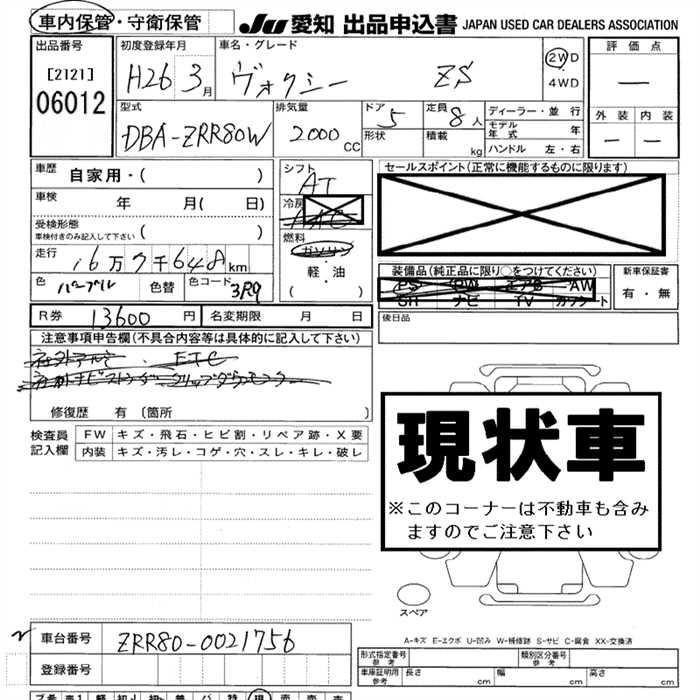 車内保管・守衛保管
JU 愛知 出品申込書 JAPAN USED CAR DEALERS ASSOCIATION
出品番号
[2121]
06012
初度登録年月
H26 3月
車名・グレード
ヴォクシー ZS
2WD
4WD
評価点
—
外装 内装
— —
型式
DBA-ZRR80W
排気量
2000 CC
ドア 5
形状
定員 8人
積載 kg
ディーラー・並行
モデル年式 年
ハンドル 左・右
車歴 自家用・( )
車検 年 月( 日)
受検形態
車検付きのみ記入して下さい ( )
走行 16万7千648km
色 パープル 色替 色コード 3R9
シフト
AT
冷房
AAC
燃料
ガソリン
軽・油
( )
セールスポイント(正常に機能するものに限ります)
装備品(純正品に限り○をつけてください)
PS PW エアB AW
SH ナビ TV カワシート
新車保証書
有・無
R券 13600円 名変期限 月 日
後日品
注意事項申告欄(不具合内容等は具体的に記入して下さい)
社外アルミ、ETC
修復歴 有 〔箇所 〕
検査員記入欄
FW キズ・飛石・ヒビ割・リペア跡・X要
内装 キズ・汚レ・コゲ・穴・スレ・キレ・破レ
現状車
※このコーナーは不動車も含み
ますのでご注意下さい
スペア
A-キズ E-エクボ U-凹み W-補修跡 S-サビ C-腐食 XX-交換済
車台番号 ZRR80-0021756
登録番号
形式指定番号 参考
類別区分番号 参考
車庫証明用 参考 長さ cm 幅 cm 高さ cm